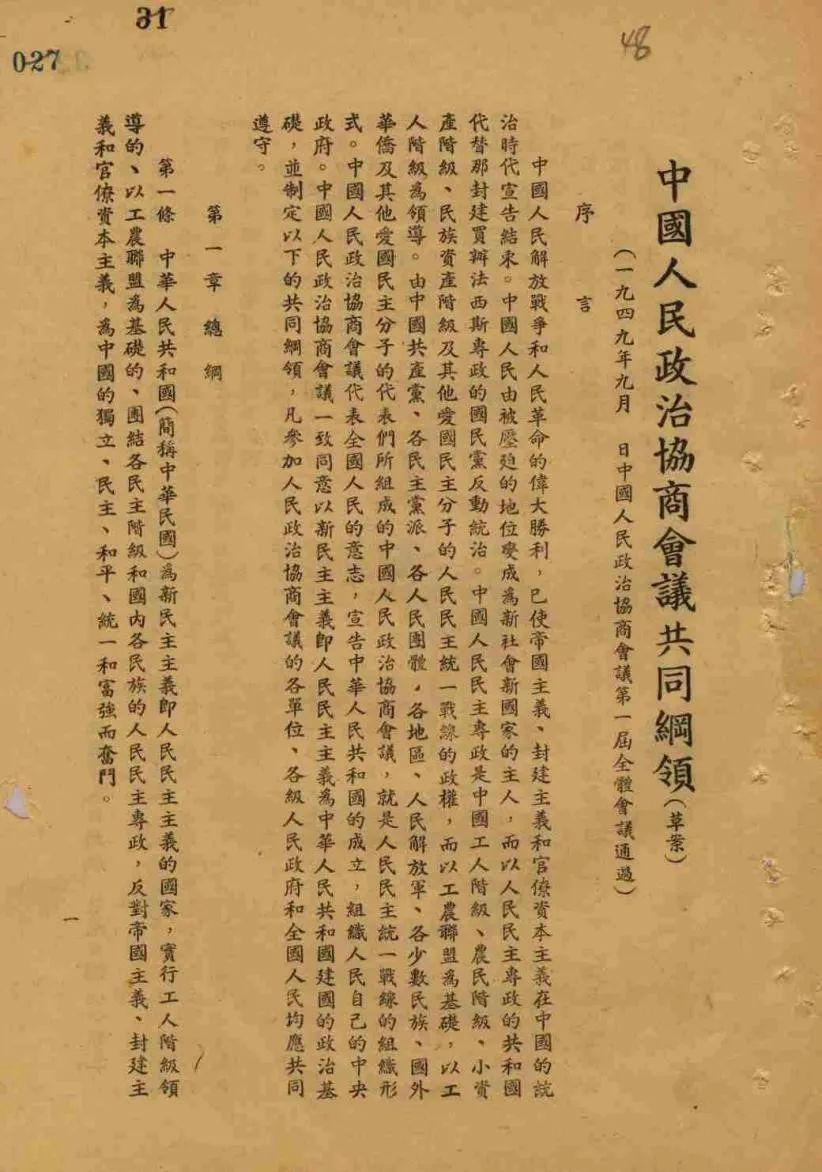 31
027
48
中國人民政治協商會議共同綱領(草案)
(一九四九年九月　日中國人民政治協商會議第一屆全體會議通過)
序言
中國人民解放戰爭和人民革命的偉大勝利，已使帝國主義、封建主義和官僚資本主義在中國的統
治時代宣告結束。中國人民由被壓迫的地位變成為新社會新國家的主人，而以人民民主專政的共和國
代替那封建買辦法西斯專政的國民黨反動統治。中國人民民主專政是中國工人階級、農民階級、小資
產階級、民族資產階級及其他愛國民主分子的人民民主統一戰線的政權，而以工農聯盟為基礎，以工
人階級為領導。由中國共產黨、各民主黨派、各人民團體，各地區、人民解放軍、各少數民族、國外
華僑及其他愛國民主分子的代表們所組成的中國人民政治協商會議，就是人民民主統一戰線的組織形
式。中國人民政治協商會議代表全國人民的意志，宣告中華人民共和國的成立，組織人民自己的中央
政府。中國人民政治協商會議一致同意以新民主主義即人民民主主義為中華人民共和國建國的政治基
礎，並制定以下的共同綱領，凡參加人民政治協商會議的各單位、各級人民政府和全國人民均應共同
遵守。
第一章總綱
第一條　中華人民共和國(簡稱中華民國)為新民主主義即人民民主主義的國家，實行工人階級領
導的、以工農聯盟為基礎的、團結各民主階級和國內各民族的人民民主專政，反對帝國主義、封建主
義和官僚資本主義，為中國的獨立、民主、和平、統一和富強而奮鬥。
一